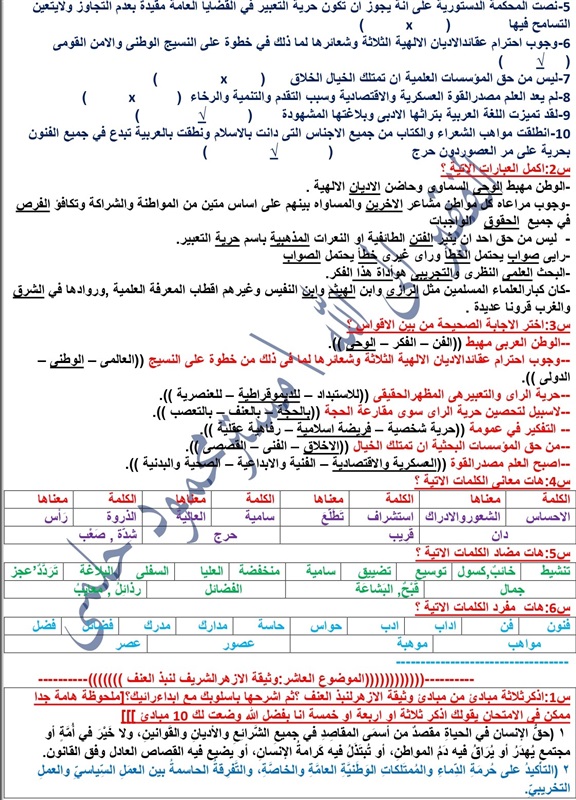 5-نصت المحكمة الدستورية على انة يجوز ان تكون حرية التعبير في القضايا العامة مقيدة بعدم التجاوز ولايتعين
التسامح فيها ( x )
6-وجوب احترام عقائدالاديان الالهية الثلاثة وشعائرها لما ذلك في خطوة على النسيج الوطنى والامن القومى
( √ )
7-ليس من حق المؤسسات العلمية ان تمتلك الخيال الخلاق ( x )
8-لم يعد العلم مصدرالقوة العسكرية والاقتصادية وسبب التقدم والتنمية والرخاء ( x )
9-لقد تميزت اللغة العربية بتراثها الادبى وبلاغتها المشهودة ( √ )
10-انطلقت مواهب الشعراء والكتاب من جميع الاجناس التى دانت بالاسلام ونطقت بالعربية تبدع في جميع الفنون
بحرية على مر العصوردون حرج ( √ )
س2:اكمل العبارات الاتية ؟
-الوطن مهبط الوحى السماوي وحاضن الاديان الالهية .
-وجوب مراعاه كل مواطن مشاعر الاخرين والمساواه بينهم على اساس متين من المواطنة والشراكة وتكافؤ الفرص
في جميع الحقوق الواجبات
- ليس من حق احد ان يثير الفتن الطائفية او النعرات المذهبية باسم حرية التعبير.
-رايى صواب يحتمل الخطأ وراى غيرى خطأ يحتمل الصواب
-البحث العلمى النظرى والتجريبى هواداة هذا الفكر.
-كان كبارالعلماء المسلمين مثل الرازى وابن الهيثم وابن النفيس وغيرهم اقطاب المعرفة العلمية ,وروادها في الشرق
والغرب قرونا عديدة .
س3:اختر الاجابة الصحيحة من بين الاقواس ؟
--الوطن العربى مهبط ((الفن – الفكر – الوحى )).
--وجوب احترام عقائدالاديان الالهية الثلاثة وشعائرها لما فى ذلك من خطوة على النسيج ((العالمى – الوطنى –
الدولى )).
--حرية الراى والتعبيرهى المظهرالحقيقى ((للاستبداد – للديموقراطية – للعنصرية )).
--لاسبيل لتحصين حرية الراى سوى مقارعة الحجة ((بالحجة – بالعنف – بالتعصب )).
-- التفكير في عمومة ((حرية شخصية – فريضة اسلامية – رفاهية عقلية )).
--من حق المؤسسات البحثية ان تمتلك الخيال ((الاخلاق – الفنى – القصصى )).
--اصبح العلم مصدرالقوة ((العسكرية والاقتصادية – الفنية والابداعية – الصحية والبدنية )).
س4:هات معانى الكلمات الاتية ؟
الكلمة معناها الكلمة معناها الكلمة معناها الكلمة معناها
الاحساس الشعوروالادراك استشراف تطلّع سامية العالية الذروة رَأس
دان قريب حرج شدّة , صَعْب
س5:هات مضاد الكلمات الاتية ؟
تنشيط خائبٌ,كسول توسيع تضييق سامية منخفضة العليا السفلى البلاغة تردّدٌ'عجز
جمال قُبْحٌ, البشاعة الفضائل رذائلٌ, معايبٌ
س6:هات مفرد الكلمات الاتية ؟
فنون فن اداب ادب حواس حاسة مدارك مدرك فضائل فضل
مواهب موهبة عصور عصر
-----------------------------------
----------((((((((((((الموضوع العاشر:وثيقة الازهرالشريف لنبذ العنف )))))))----------
س1:اذكرثلاثة مبادئ من مبادئ وثيقة الازهرلنبذ العنف ؟ثم اشرحها باسلوبك مع ابداءرائيك؟[ملحوظة هامة جدا
ممكن في الامتحان يقولك اذكر ثلاثة او اربعة او خمسة انا بفضل الله وضعت لك 10 مبادئ ]]]
١ – (حقُّ الإنسان في الحياةِ مقصدٌ من أسمَى المقاصِد في جميع الشرائع والأديان والقوانين، ولا خَيْرَ في أُمَّةٍ أو
مجتمعٍ يُهْدَرُ أو يُرَاقُ فيه دَمُ المواطن، أو تُبتَذَلُ فيه كَرامةُ الإنسانِ، أو يضيعُ فيه القصاص العادل وفق القانون.
٢ – (التأكيدُ على حُرمَةِ الدِّماءِ والمُمتلَكاتِ الوَطنيَّةِ العامَّةِ والخاصَّةِ، والتَّفرقة الحاسمةُ بين العمَلِ السِّياسيِّ والعملِ
التخريبيّ.